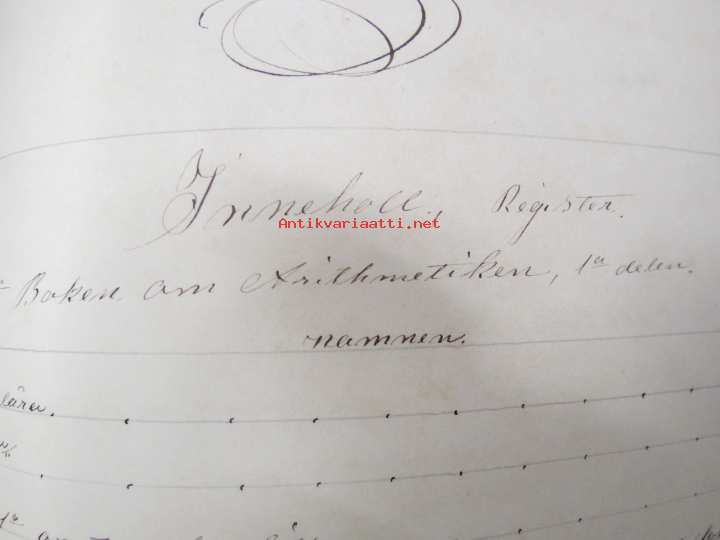 Innehåll, Register.
Antikvariaatti.net
Boken om Arithmetiken, 1a delen.
namnen.